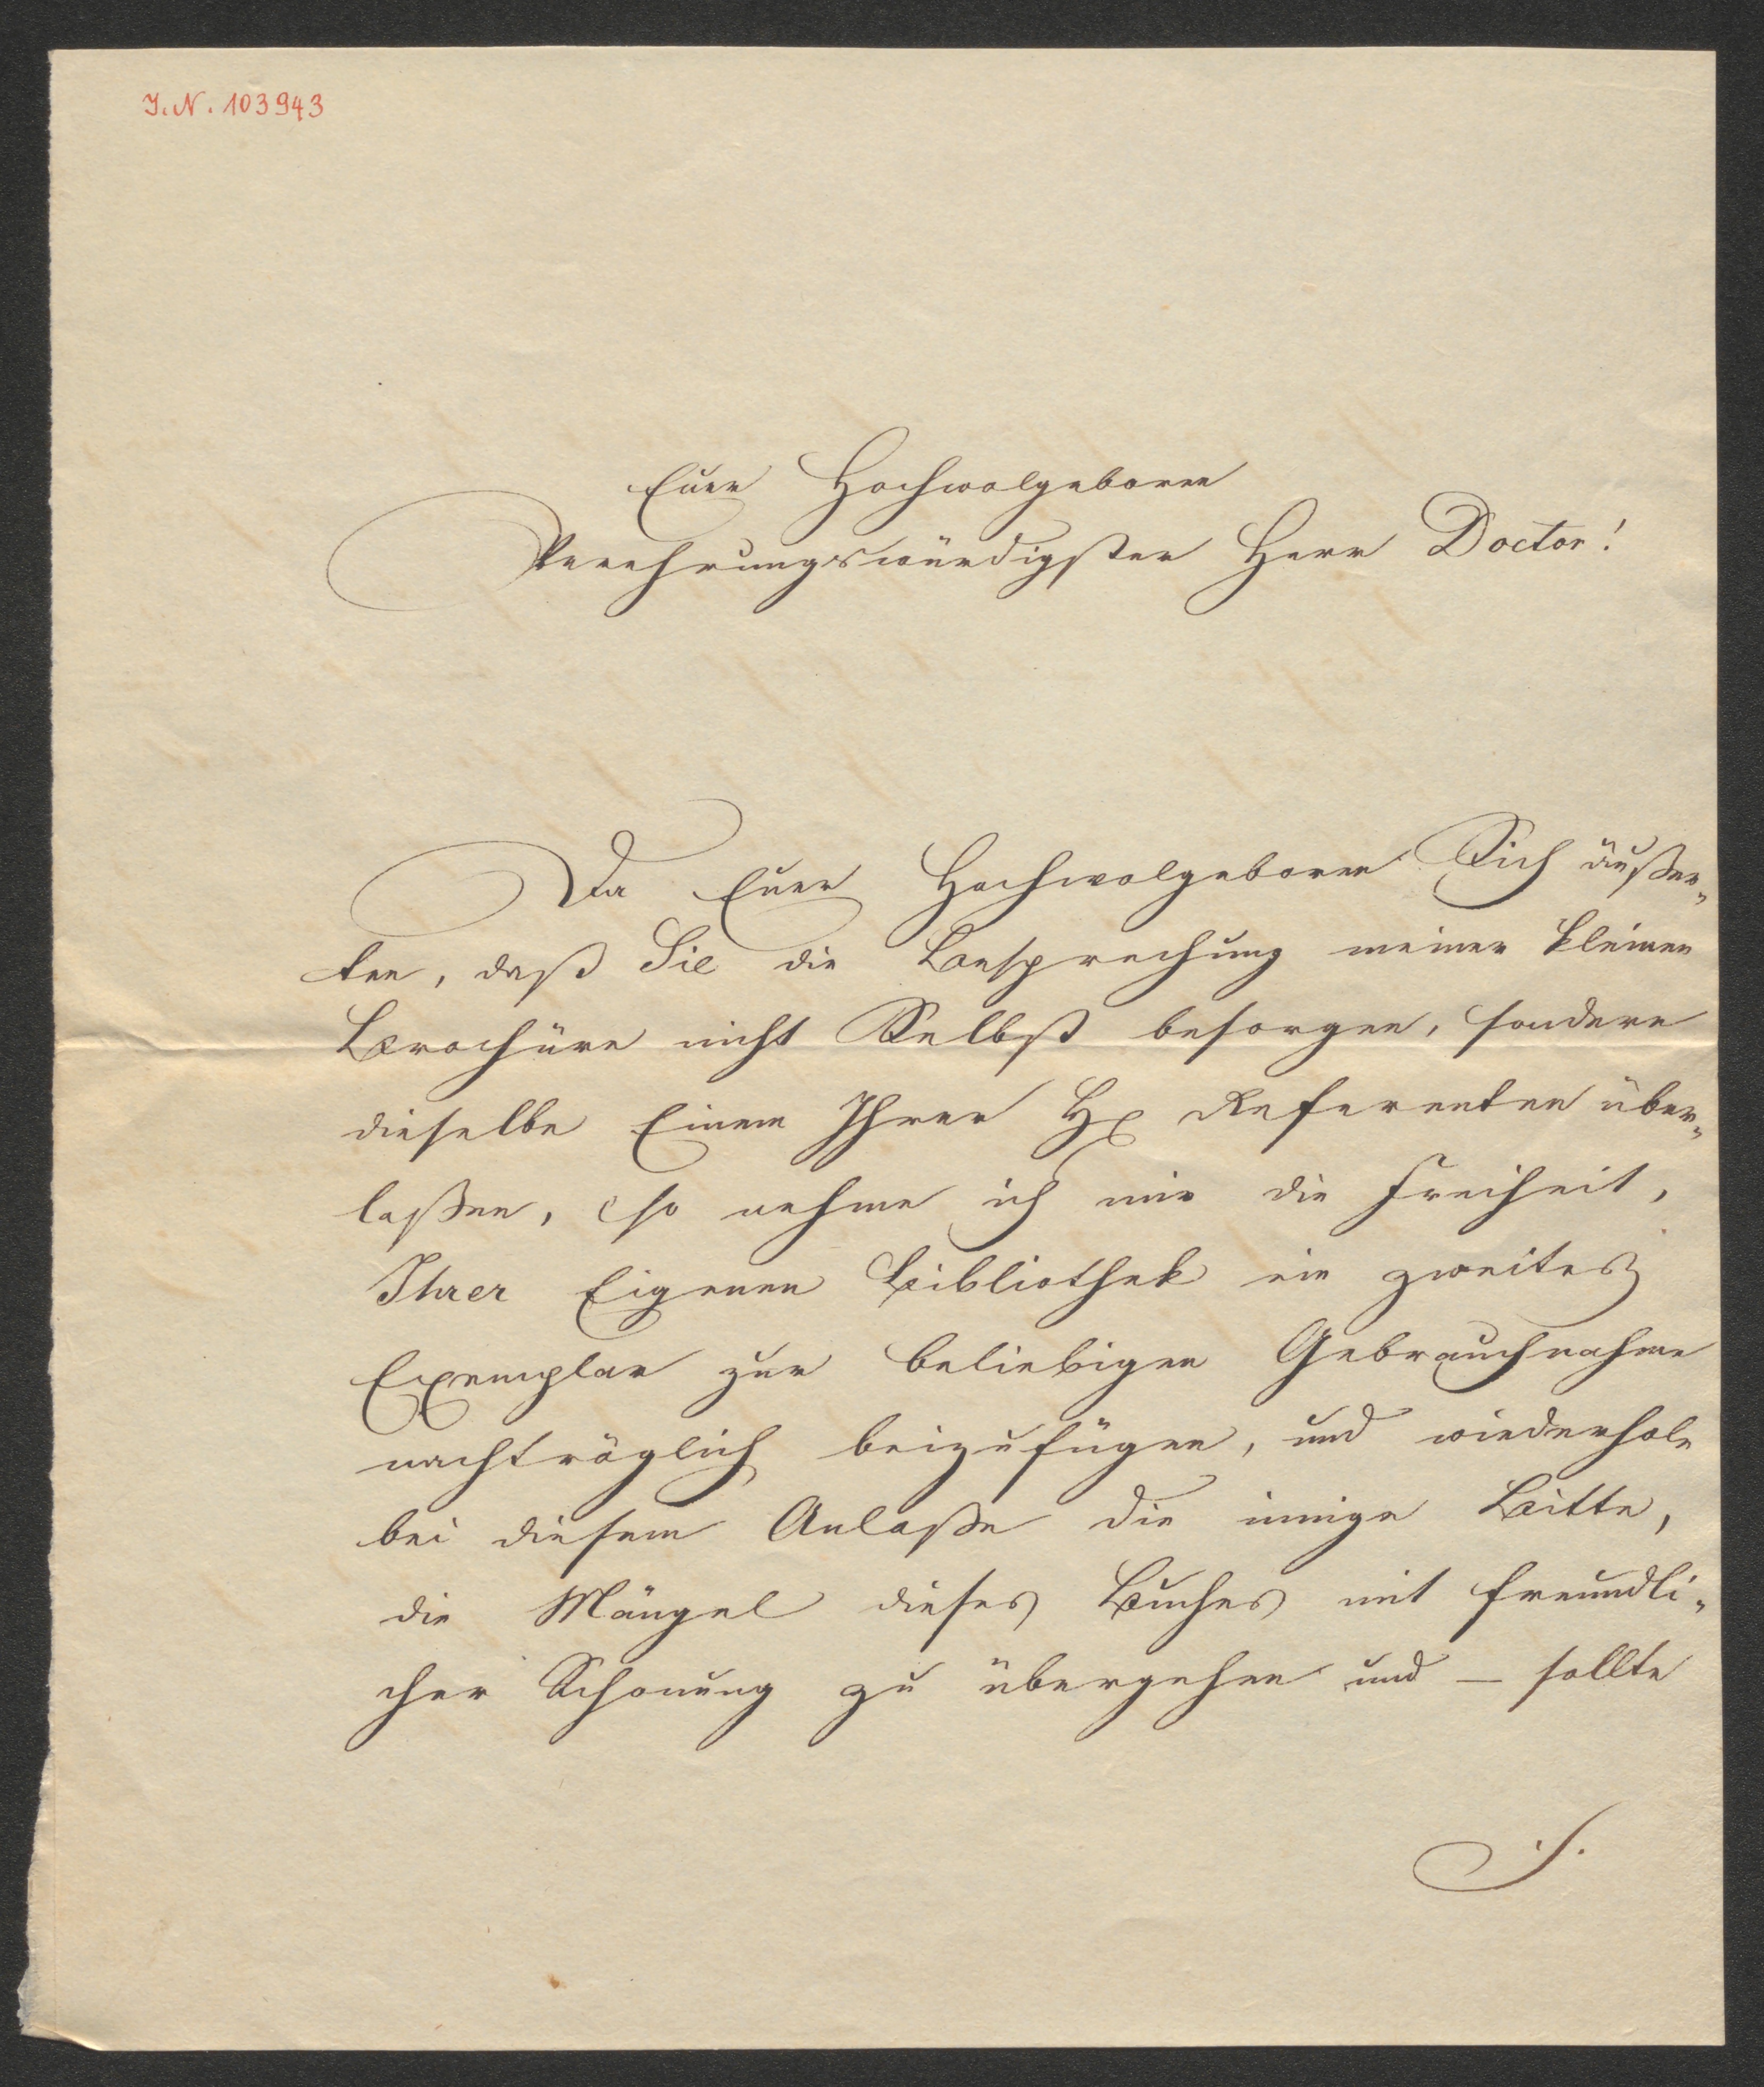 I.N. 103943
Euer Hochwolgeboren
Verehrungswürdigster Herr Doctor!
Da Euer Hochwolgeboren Sich äußer-
ten, daß Sie die Besprechung meiner kleinen
Brochüre nicht Selbst besorgen, sondern
dieselbe Einem Ihrer H Referenten über-
laßen, so nehme ich mir die Freiheit,
Ihrer Eigenen Bibliothek ein zweites
Exemplar zur beliebigen Gebrauchnahme
nachträglich beizufügen, und wiederhole
bei diesem Anlaße die innige Bitte,
die Mängel dieses Buches mit freundli-
cher Schonung zu übergehen und – sollte